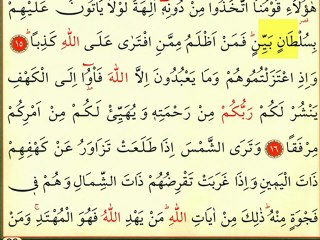 هٰٓؤُ۬لَٓاءِ قَوْمُنَا اتَّخَذُوا مِنْ دُونِهٖٓ اٰلِهَةًۜ لَوْلَا يَأْتُونَ عَلَيْهِمْ
بِسُلْطَانٍ بَيِّنٍۜ فَمَنْ اَظْلَمُ مِمَّنِ افْتَرٰى عَلَى اللّٰهِ كَذِبًاۜ ﴿١٥﴾
وَاِذِ اعْتَزَلْتُمُوهُمْ وَمَا يَعْبُدُونَ اِلَّا اللّٰهَ فَأْوٗٓا اِلَى الْكَهْفِ
يَنْشُرْ لَكُمْ رَبُّكُمْ مِنْ رَحْمَتِهٖ وَيُهَيِّئْ لَكُمْ مِنْ اَمْرِكُمْ
مِرْفَقًا ﴿١٦﴾ وَتَرَى الشَّمْسَ اِذَا طَلَعَتْ تَزَاوَرُ عَنْ كَهْفِهِمْ
ذَاتَ الْيَمٖينِ وَاِذَا غَرَبَتْ تَقْرِضُهُمْ ذَاتَ الشِّمَالِ وَهُمْ فٖي
فَجْوَةٍ مِنْهُۜ ذٰلِكَ مِنْ اٰيَاتِ اللّٰهِۜ مَنْ يَهْدِ اللّٰهُ فَهُوَ الْمُهْتَدِۚ وَمَنْ